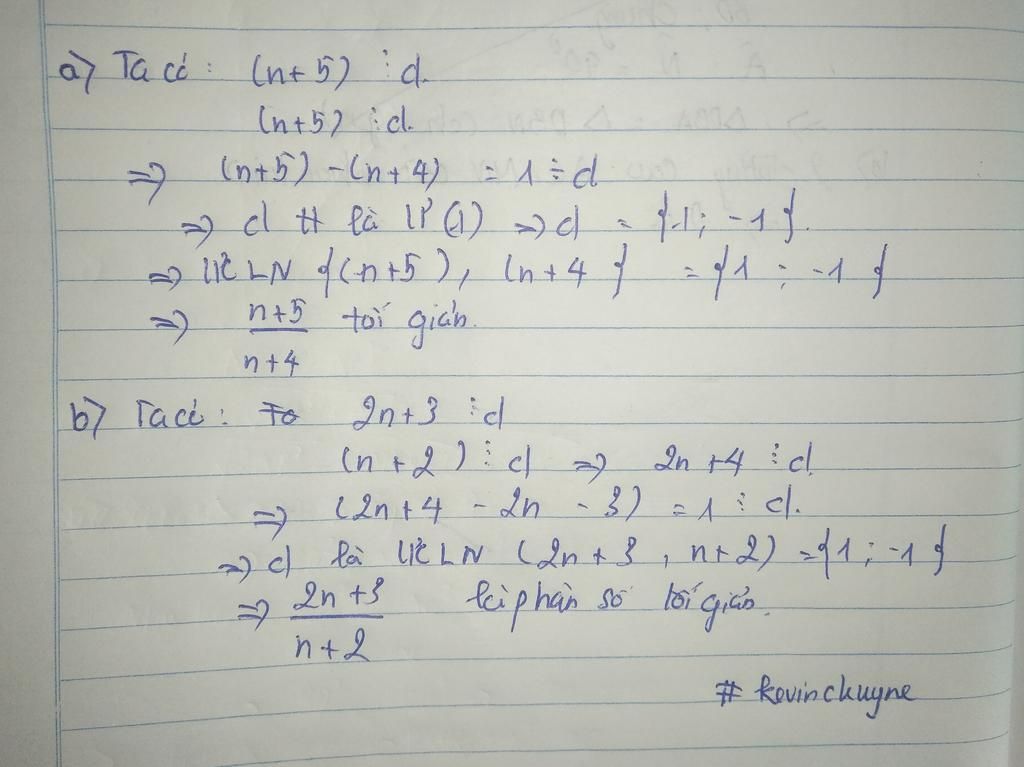 a) Ta có: (n+5) ⋮ d.
(n+5) ⋮ d.
⇒ (n+5) - (n+4) = 1 ⋮ d
⇒ d là Ư(1) ⇒ d = {1; -1}.
⇒ ƯCLN {(n+5), (n+4} = {1; -1}
⇒ n+5/n+4 tối giản.
b) Ta có: 2n+3 ⋮ d
(n+2) ⋮ d ⇒ 2n+4 ⋮ d.
⇒ (2n+4 - 2n - 3) = 1 ⋮ d.
⇒ d là ƯCLN (2n+3, n+2) = {1; -1}
⇒ 2n+3/n+2 là phân số tối giản.
# kevinchuyne